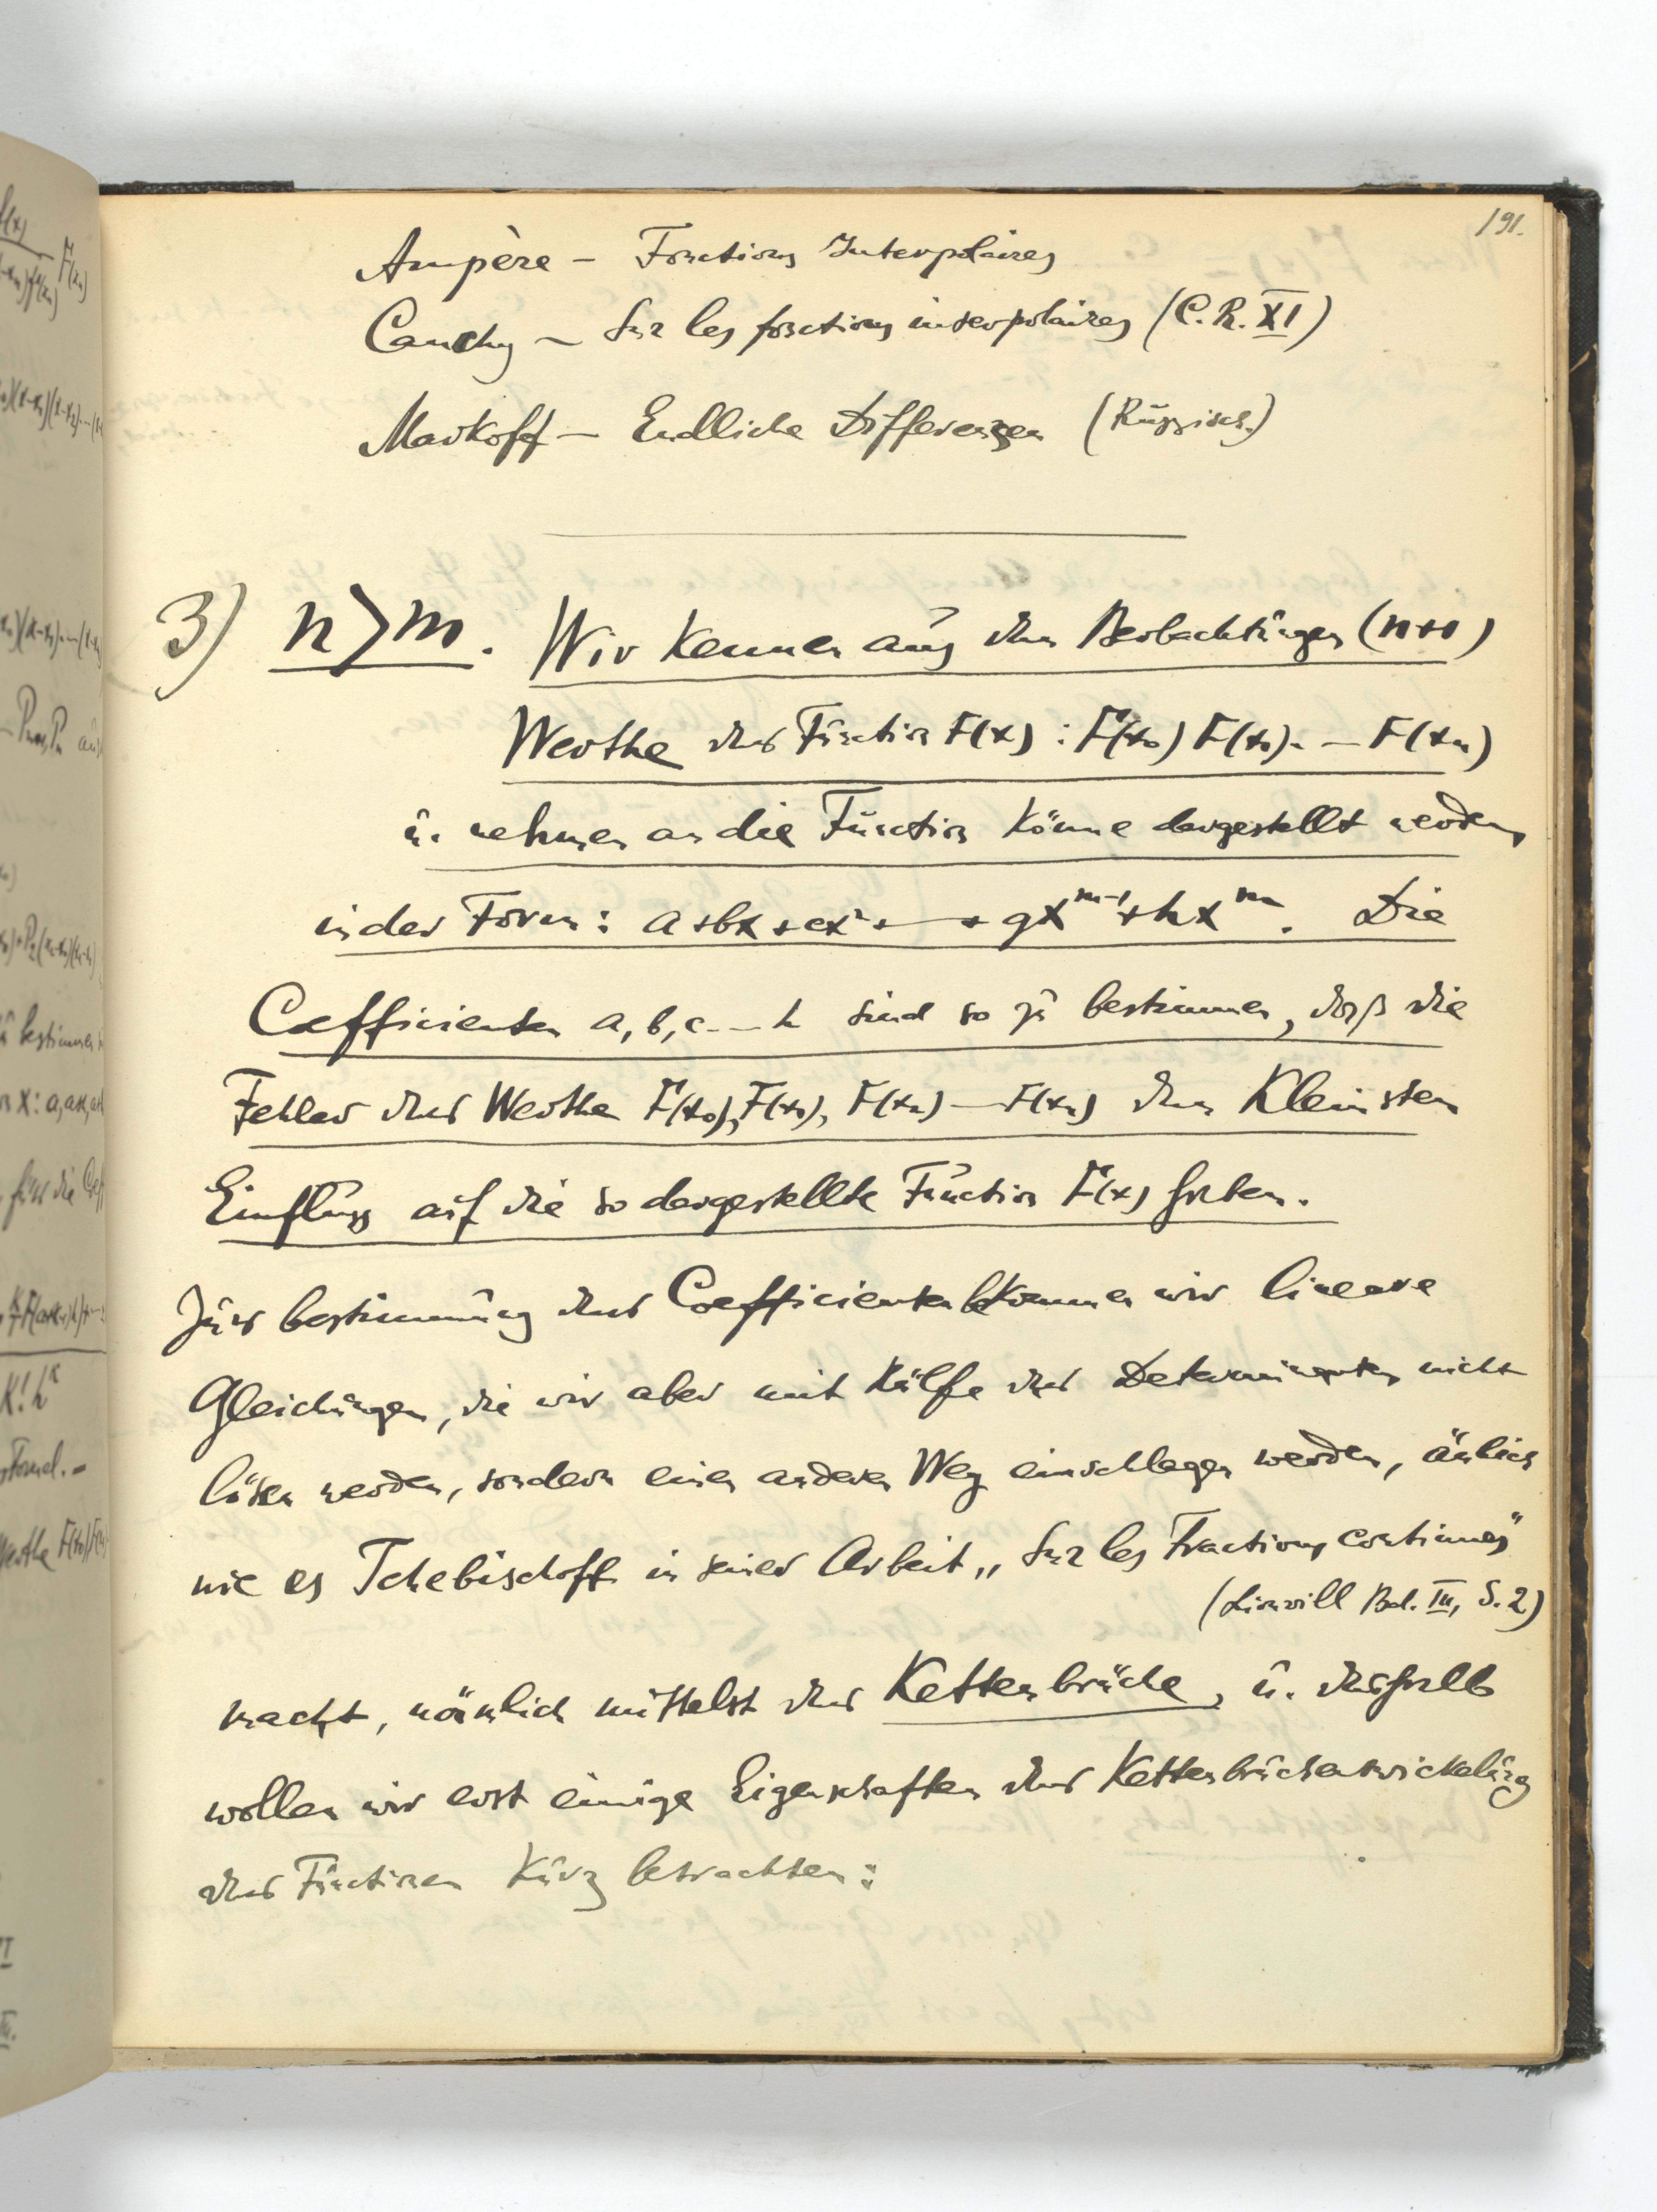 191.
Ampère – Fonctions Interpolaires
Cauchy – Sur les fonctions interpolaires (C. R. XI)
Markoff – Endliche Differenzen (Russisch.)
3) n>m. Wir kennen aus den Beobachtungen (n+1)
Werthe der Function F(x) : F(x₀) F(x₁). – F(xₙ)
u. nehmen an die Function könne dargestellt werden,
in der Form: a+bx+cx²+ — + gxᵐ⁻¹+hxᵐ. Die
Coefficienten a, b, c - - h sind so zu bestimmen, daß die
Fehler der Werthe F(x₀), F(x₁), F(x₂) — F(xₙ) den Kleinsten
Einfluss auf die so dargestellte Function F(x) haben.
Zur bestimmung der Coefficienten bekommen wir lineare
Gleichungen, die wir aber mit Hülfe der Determinanten nicht
lösen werden, sondern einen anderen Weg einschlagen werden, änlich
wie es Tchebischoff in seiner Arbeit „Sur les Fractions continues"
(Liouvill Bd. III, S. 2)
macht, nämlich mittelst der Kettenbrüche, u. deshalb
wollen wir erst einige Eigenschaften der Kettenbruchentwickelung
der Functionen Kurz betrachten: